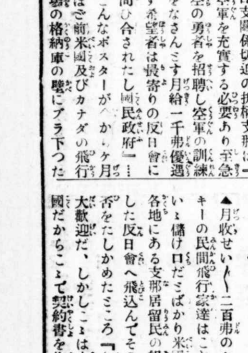 空軍を充實する必要あり至急
空の勇者を招聘し空軍の訓練
をなさんとす月給一千弗優遇
す希望者は最寄りの反日會に
問ひ合されたし國民政府』…
こんなポスターが　から　ヶ月
ほど前米國及びカナダの飛行
場の格納庫の壁にブラ下つた
▲月收せい〲二百弗の
キーの民間飛行家達はこ
いゝ儲け口だとばかり米
各地にある支那居留民の
した反日會へ飛込んでその
否をたしかめたところ『
大歡迎だ、しかしこゝは
國だからこゝで契約書を